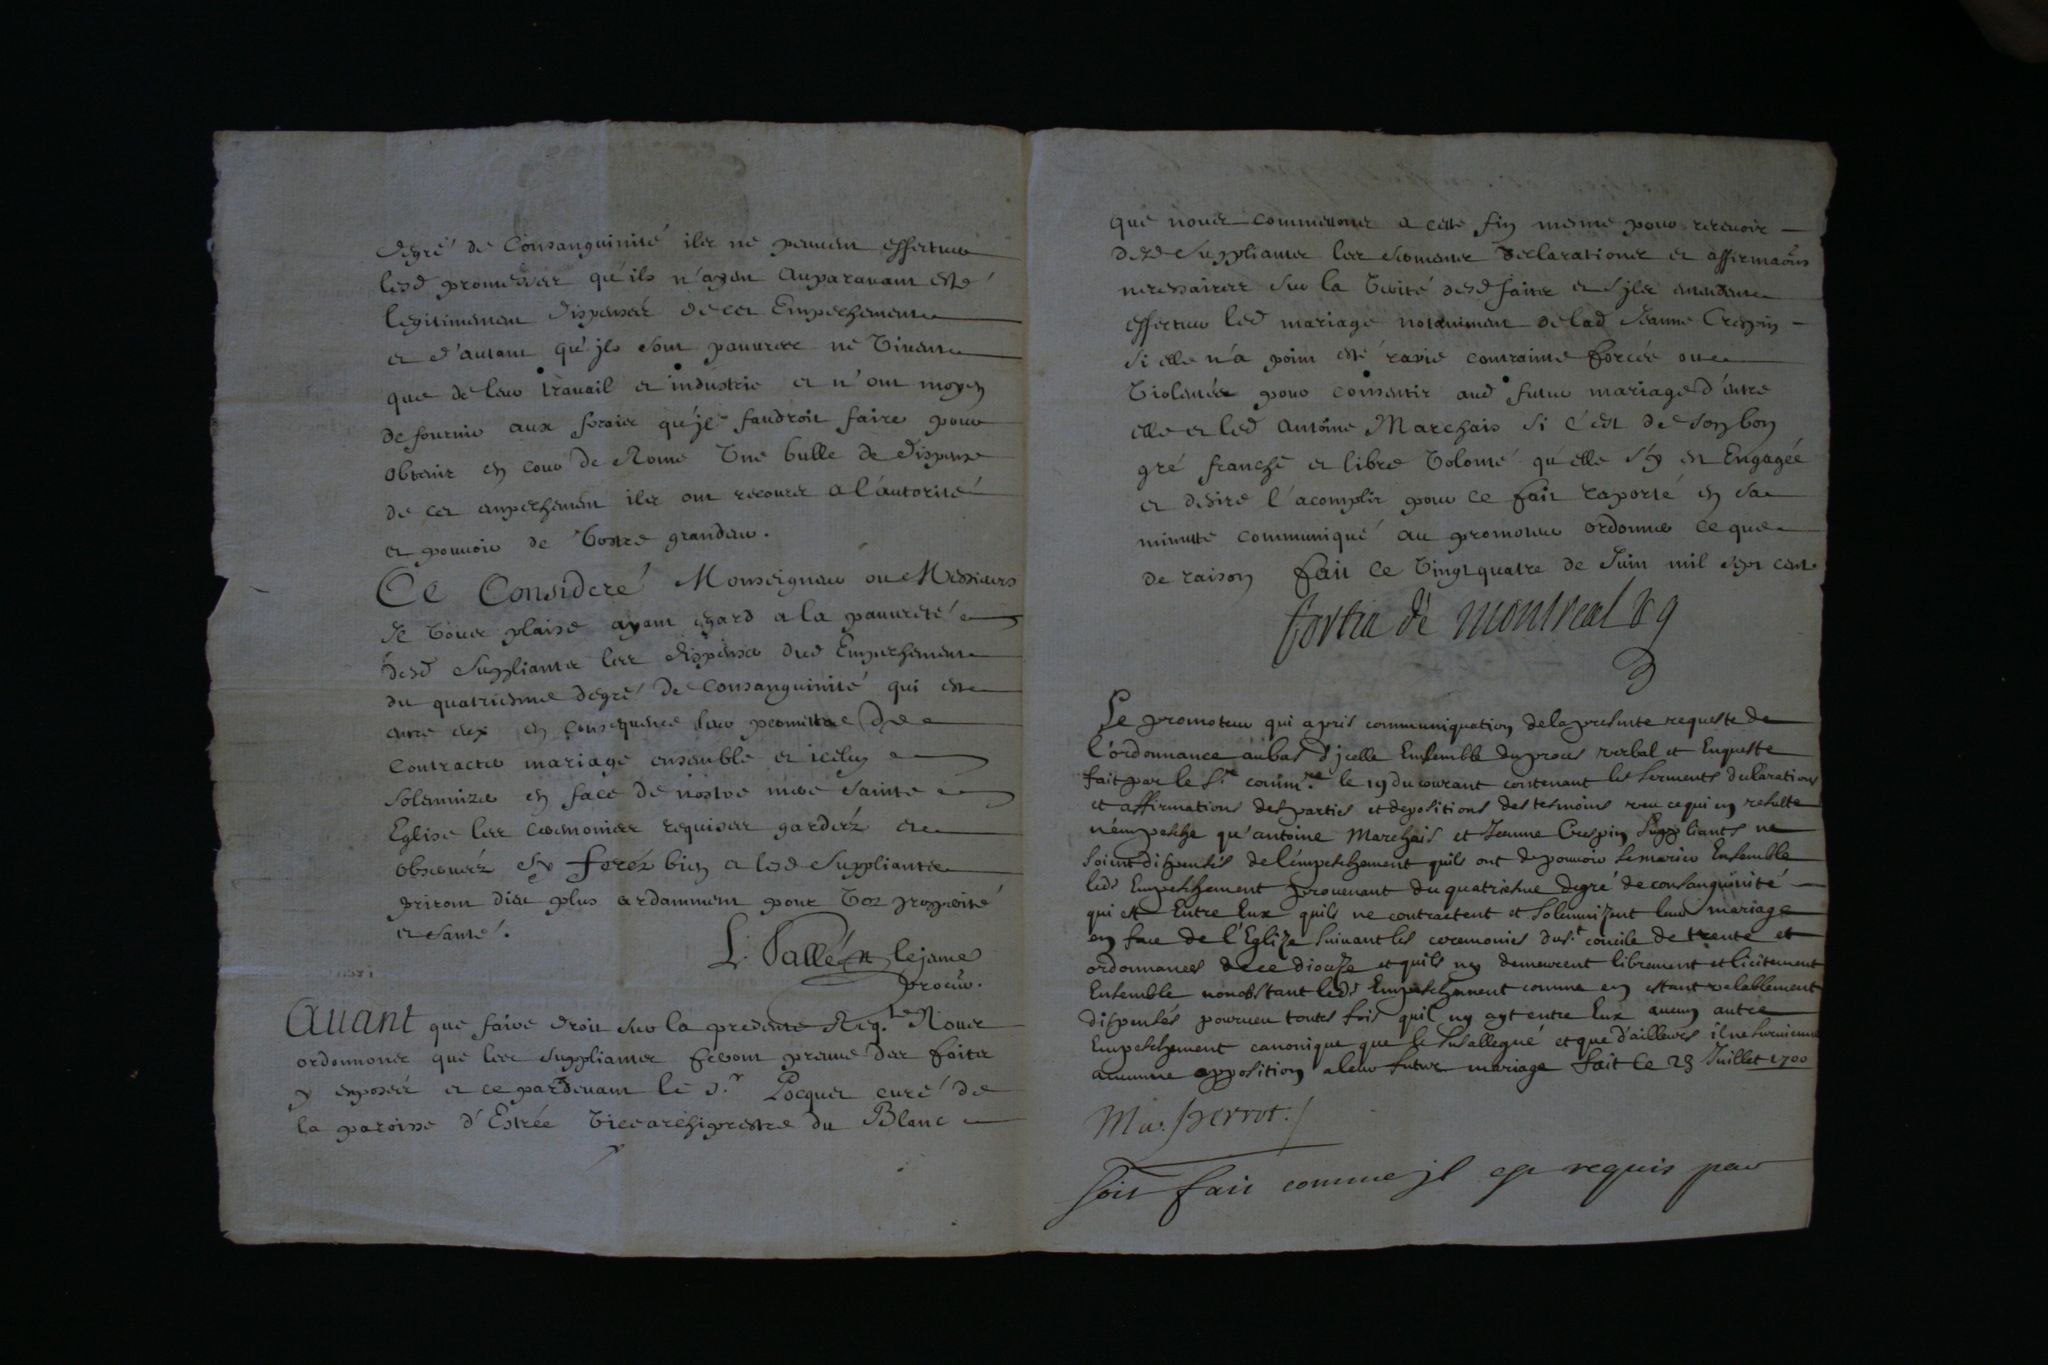 degré de Consanguinité ilz ne peuvent effectuer
lesd promesses qu'ils n'ayent auparavant esté
legitimement dispensés de cet Empechement
et d'autant qu'jls sont pauvres ne vivent
que de leur travail et industrie et n'ont moyen
de fournir aux fraiz qu'jl faudroit faire pour
obtenir en cour de Rome une bulle de dispense
de cet empechement ilz ont recours a l'autorité
et pouvoir de vostre grandeur.
Ce Consideré Monseigneur ou Messieurs
Il vous plaise ayant egard a la pauvreté
desd suppliantz les dispenser dud Empechement
du quatriesme degré de consanguinité qui est
entre eux en consequence leur permettre de
contracter mariage ensemble et iceluy
solemnizer en face de nostre mere sainte
Eglise les ceremonies requises gardéez et
observéez Et ferez bien a lesd suppliants
priront dieu plus ardamment pour vos prosperité
et santé.
L. Pallé lejeune
procur.
Avant que faire droit sur la presente Req.te Nous
ordonnons que les suppliants feront preuve des faits
y exposés et ce pardevant le s.r Pocquet curé de
la paroisse d'Estrée vicearchiprestre du Blanc
que nous commettons a cette fin mesme pour recevoir
desd suppliants les sermens declarations et affirmaõns
necessaires sur la verité desd faits et s'jls entendent
effectuer led mariage notamment de lad Jeanne Crespin
si elle n'a point esté ravie contrainte forcée ou
violentée pour consentir aud futur mariage d'entre
elle et led Antoine Marchais si c'est de son bon
gré franche et libre volonté qu'elle s'y est Engagée
et desire l'acomplir pour ce fait raporté en sa
minutte communiqué au promoteur ordonner ce que
de raison fait ce vingt quatre de Juin mil sept cent
fortia de montreal v g
Le promoteur qui a pris communiquation de la presente requeste de
l'ordonnance au bas d'jcelle Ensemble du proces verbal et Enqueste
fait par le s.r comm.re le 19 du courant contenant les serments declarations
et affirmation des parties et depositions des tesmoins veu ce qui en resulte
n'empesche qu'antoine Marchais et Jeanne Crespin suppliants ne
soient dispensés de l'empeschement quils ont de pouvoir se marier Ensemble
leds Empeschement provenant du quatriesme degré de consanguinité
qui est Entre Eux quils ne contractent et solemnizent leur mariage
en face de l'Eglize suivant les ceremonies du s.t concile de trente et
ordonnances de ce dioceze et quils ny demeurent librement et licitement
Ensemble nonobstant leds Empeschement comme en estant valablement
dispensés pourveu toutes fois quil ny ayt entre Eux aucun autre
Empeschement canonique que le susallegué et que d'ailleurs il ne survienne
aucunne opposition a leur futur mariage fait le 23 Juillet 1700
Perrot.
soit fait comme jl est requis par